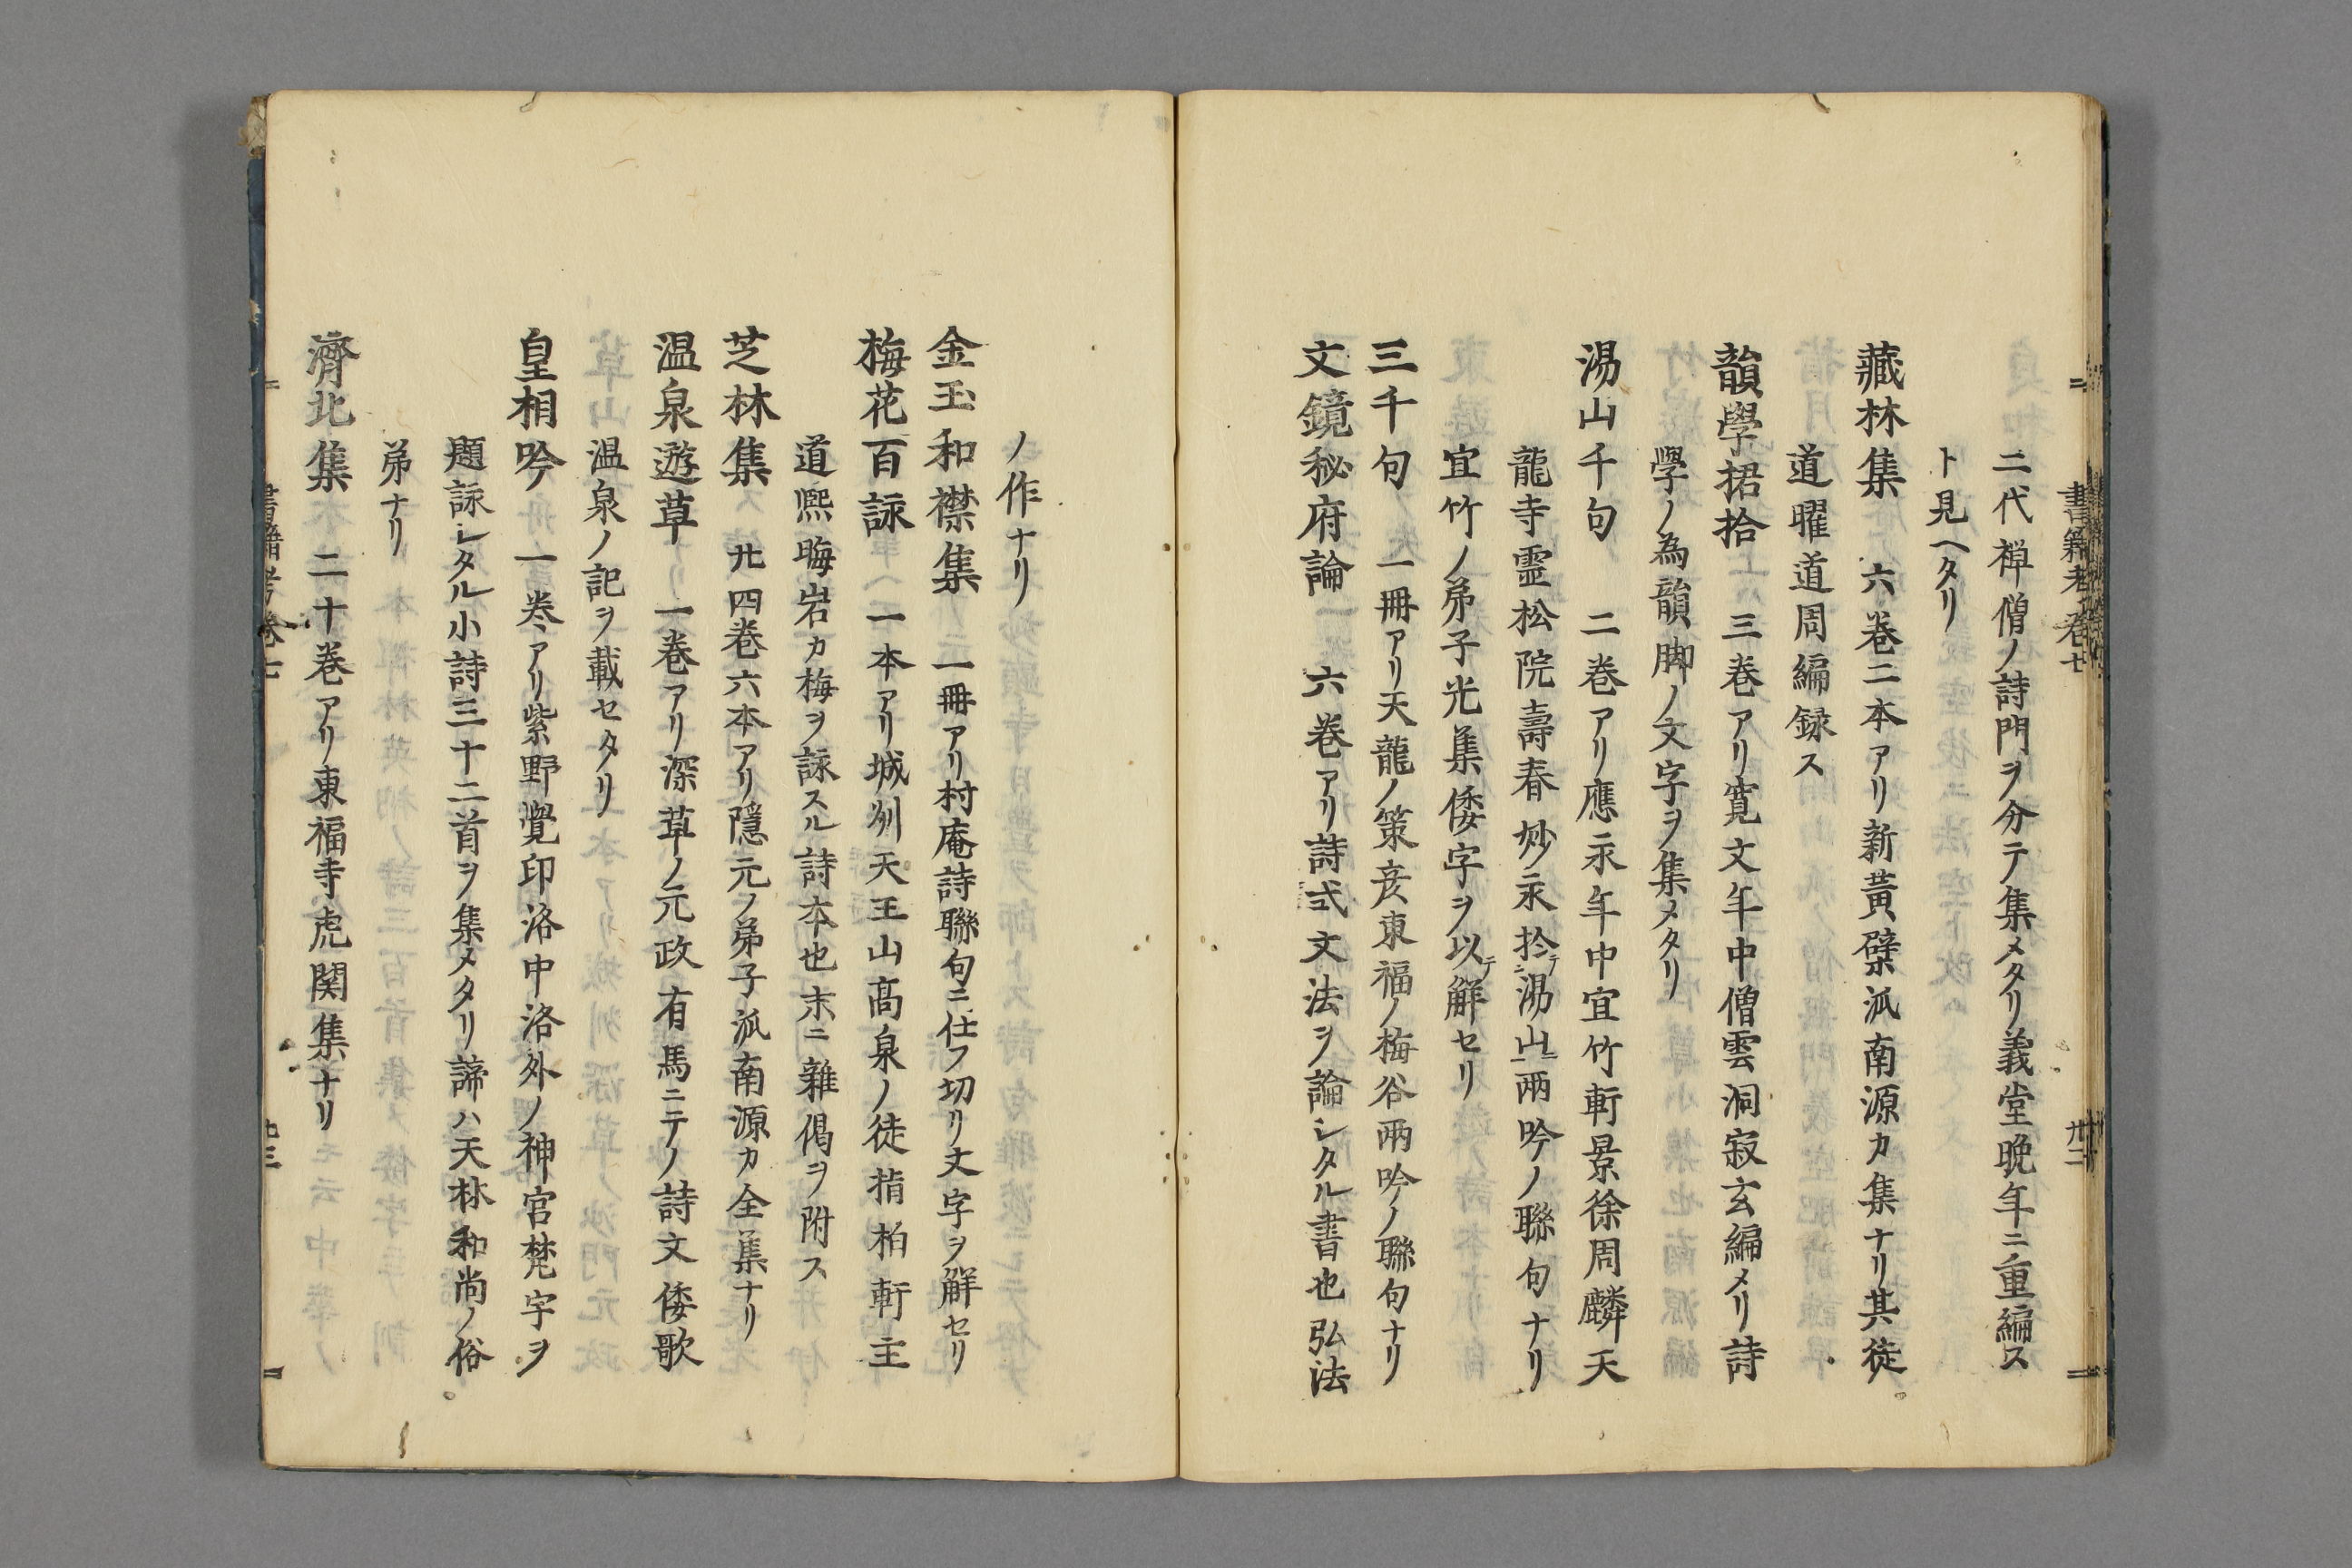 書籍考巻七
卅二
二代禅僧ノ詩門ヲ分テ集メタリ義堂晩年ニ重編ス
ト見ヘタリ
藏林集　六巻二本アリ新黄檗派南源カ集ナリ其徒
道曜道周編録ス
韻學捃拾　三巻アリ寛文年中僧雲洞寂玄編メリ詩
學ノ為韻脚ノ文字ヲ集メタリ
湯山千句　二巻アリ應永年中宜竹軒景徐周麟天
龍寺霊松院壽春妙永扵テ湯山ニ両吟ノ聯句ナリ
宜竹ノ弟子光集倭字ヲ以テ解セリ
三千句　一冊アリ天龍ノ策彦東福ノ梅谷両吟ノ聯句ナリ
文鏡秘府論　六巻アリ詩式文法ヲ論シタル書也弘法
ノ作ナリ
金玉和襟集　一冊アリ村庵詩聯句ニ仕フ切リ文字ヲ解セリ
梅花百詠　一本アリ城州天王山高泉ノ徒指柏軒主
道熈晦岩カ梅ヲ詠スル詩本也末ニ雜偈ヲ附ス
芝林集　廿四巻六本アリ隠元ノ弟子派南源カ全集ナリ
温泉遊草　一巻アリ深草ノ元政有馬ニテノ詩文倭歌
温泉ノ記ヲ載セタリ
皇相吟　一巻アリ紫野覺印洛中洛外ノ神宮梵字ヲ
題詠シタル小詩三十二首ヲ集メタリ諦ハ天林和尚ノ俗
弟ナリ
濟北集　二十巻アリ東福寺虎関集ナリ
書籍考巻七
卅三